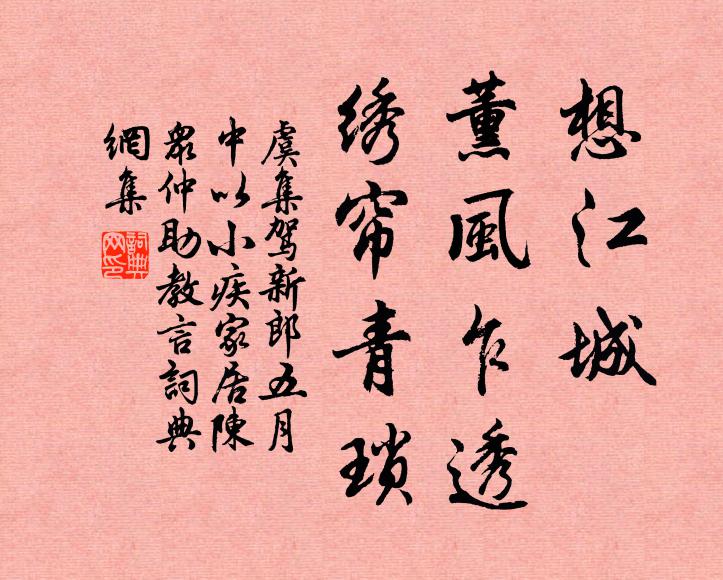 想江城
薰風乍透
綉帘青瑣
虞集駕新郎五月
中以小疾家居陳
衆仲助教言詞典
網集
詞典
网印